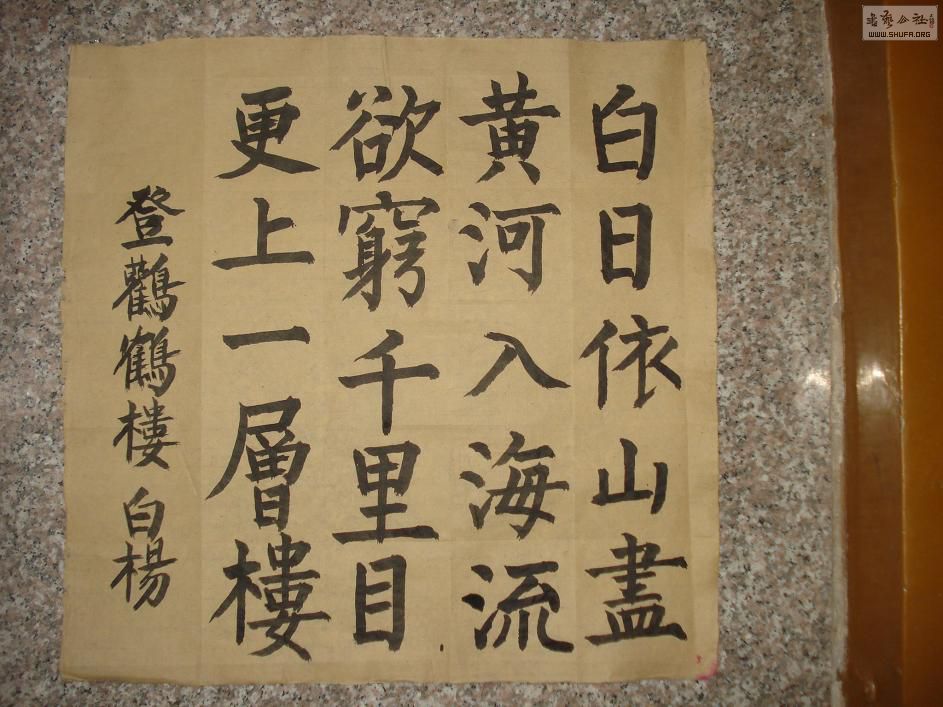 白日依山盡
黄河入海流
欲窮千里目
更上一層樓
登鸛鶴樓 白楊
書藝公社
WWW.SHUFA.ORG